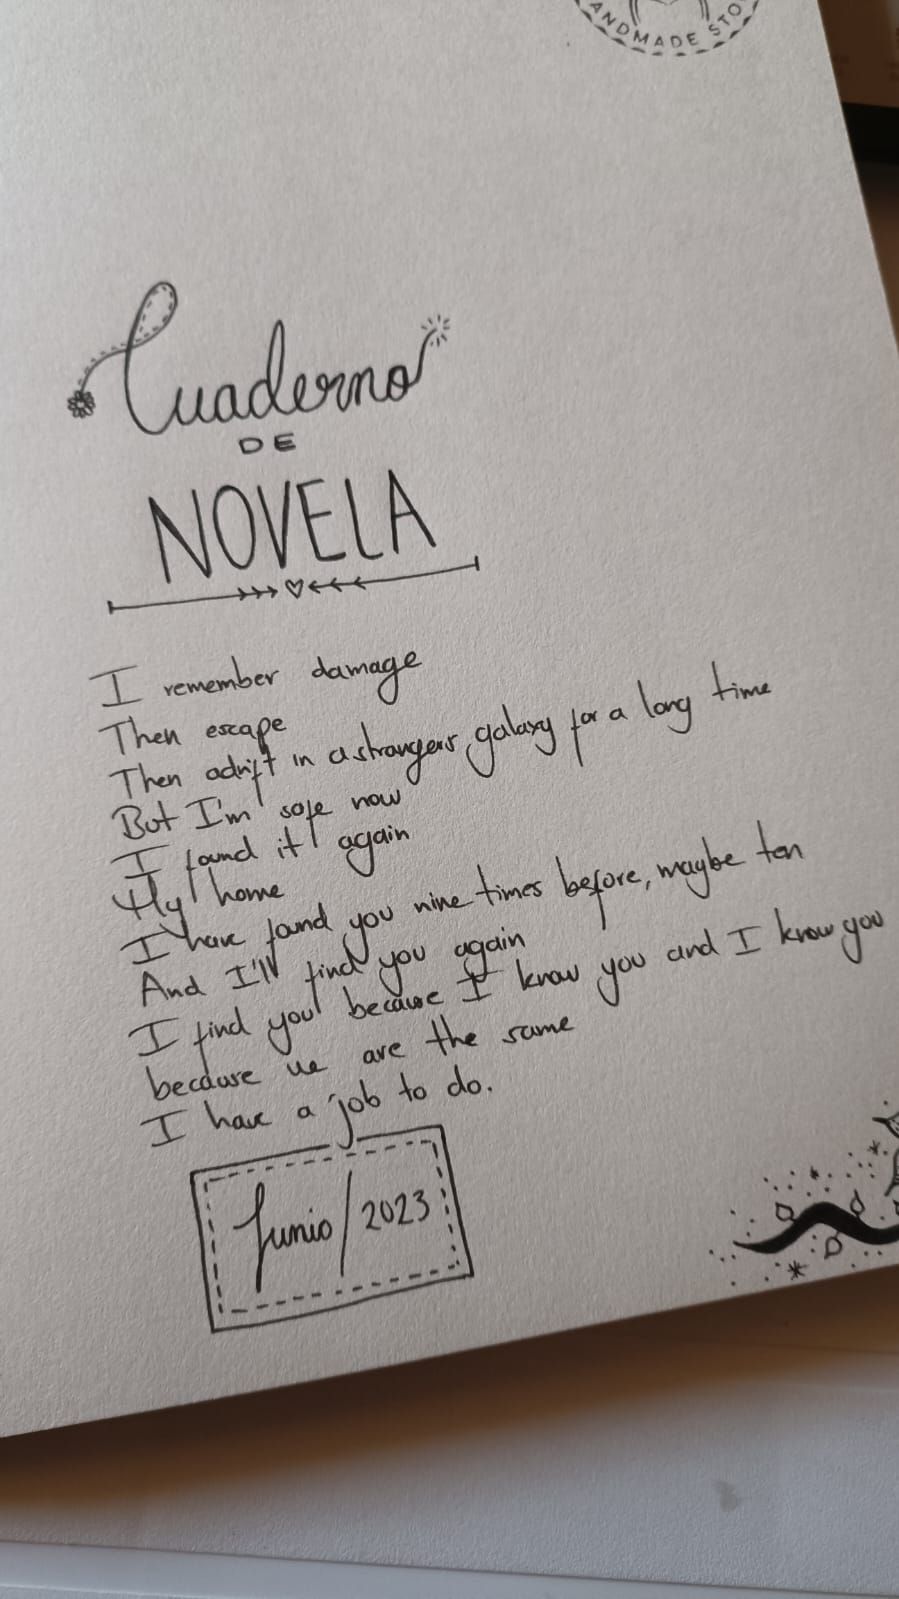 ANDMADE STO
Cuaderno
DE
NOVELA
I remember damage
Then escape
Then adrift in a strangers galaxy for a long time
But I'm safe now
I found it again
My home
I have found you nine times before, maybe ten
And I'll find you again
I find you because I know you and I know you
because we are the same
I have a job to do.
Junio/2023